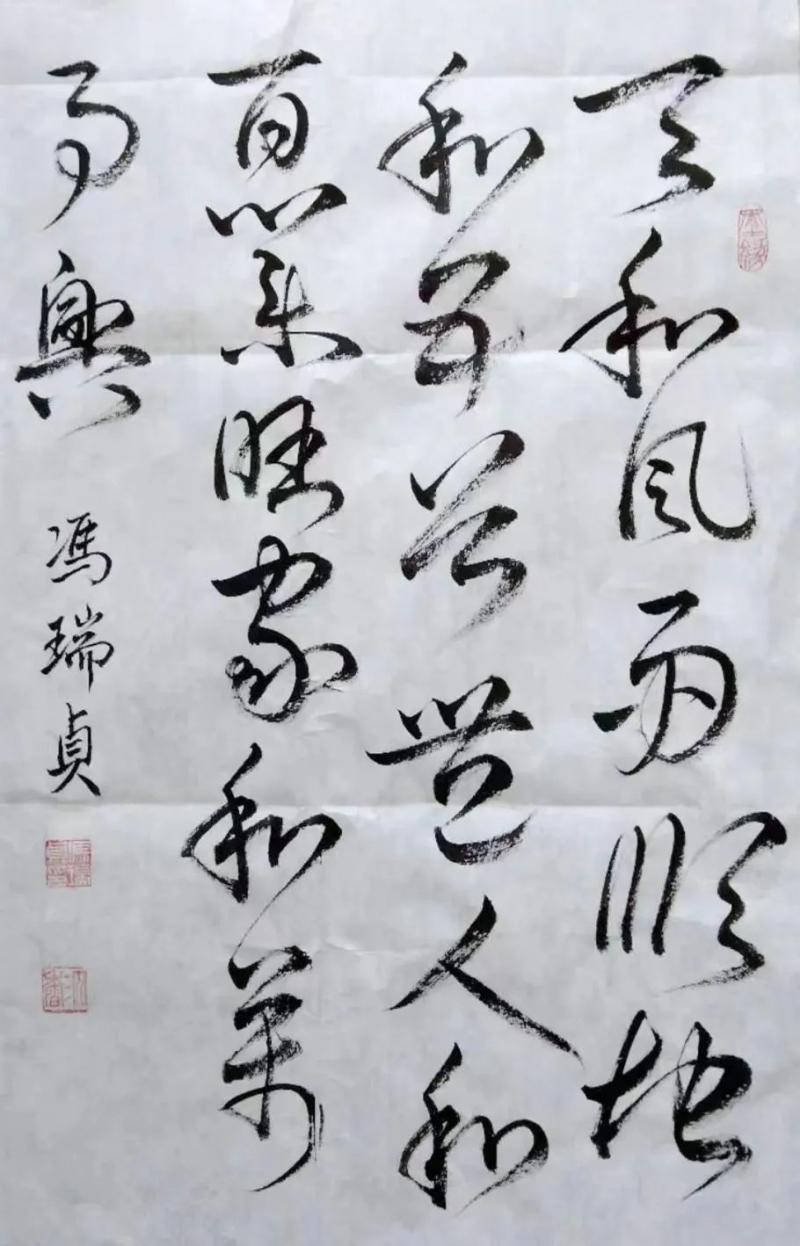 天和風雨順地
和五谷豐人和
百業旺家和萬
事興 馮瑞貞